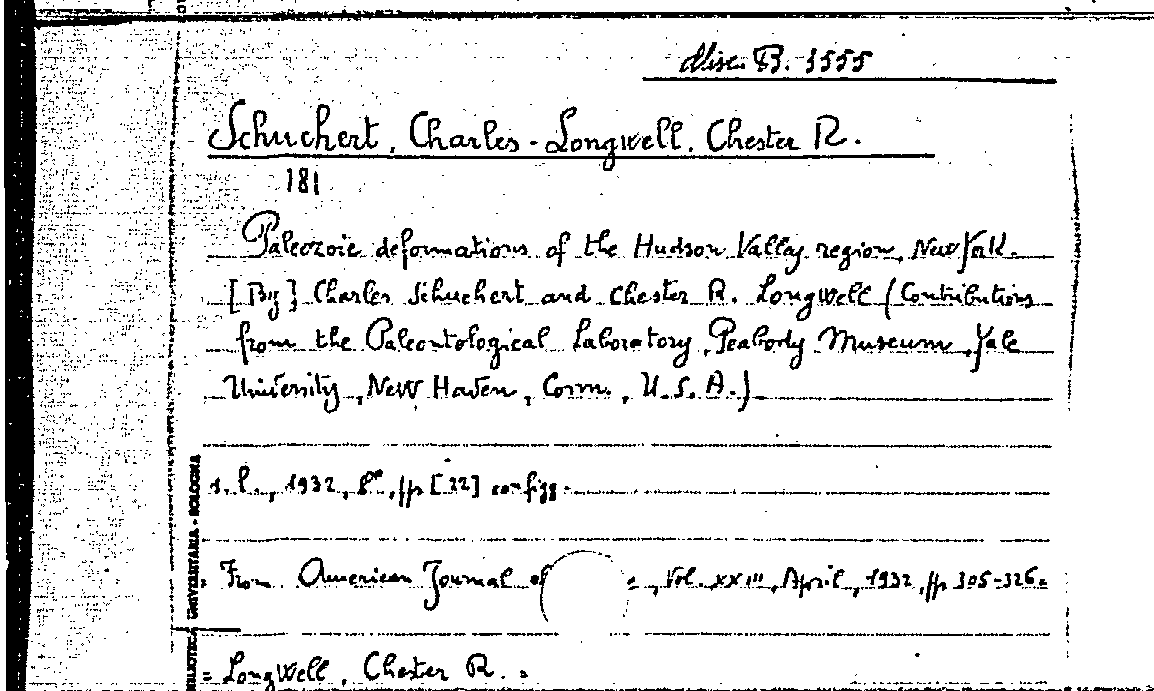 Misc. B. 3555
Schuchert, Charles - Longwell, Chester R.
181
Paleozoic deformations of the Hudson Valley region, New York.
[By] Charles Schuchert and Chester R. Longwell (Contributions
from the Paleontological Laboratory, Peabody Museum, Yale
University, New Haven, Conn., U.S.A.)
s.l., 1932, 8°, pp [22] con figg.
= From American Journal of , Vol. XXIII, April, 1932, pp 305-326=
= Longwell, Chester R. =
BIBLIOTECA UNIVERSITARIA - BOLOGNA